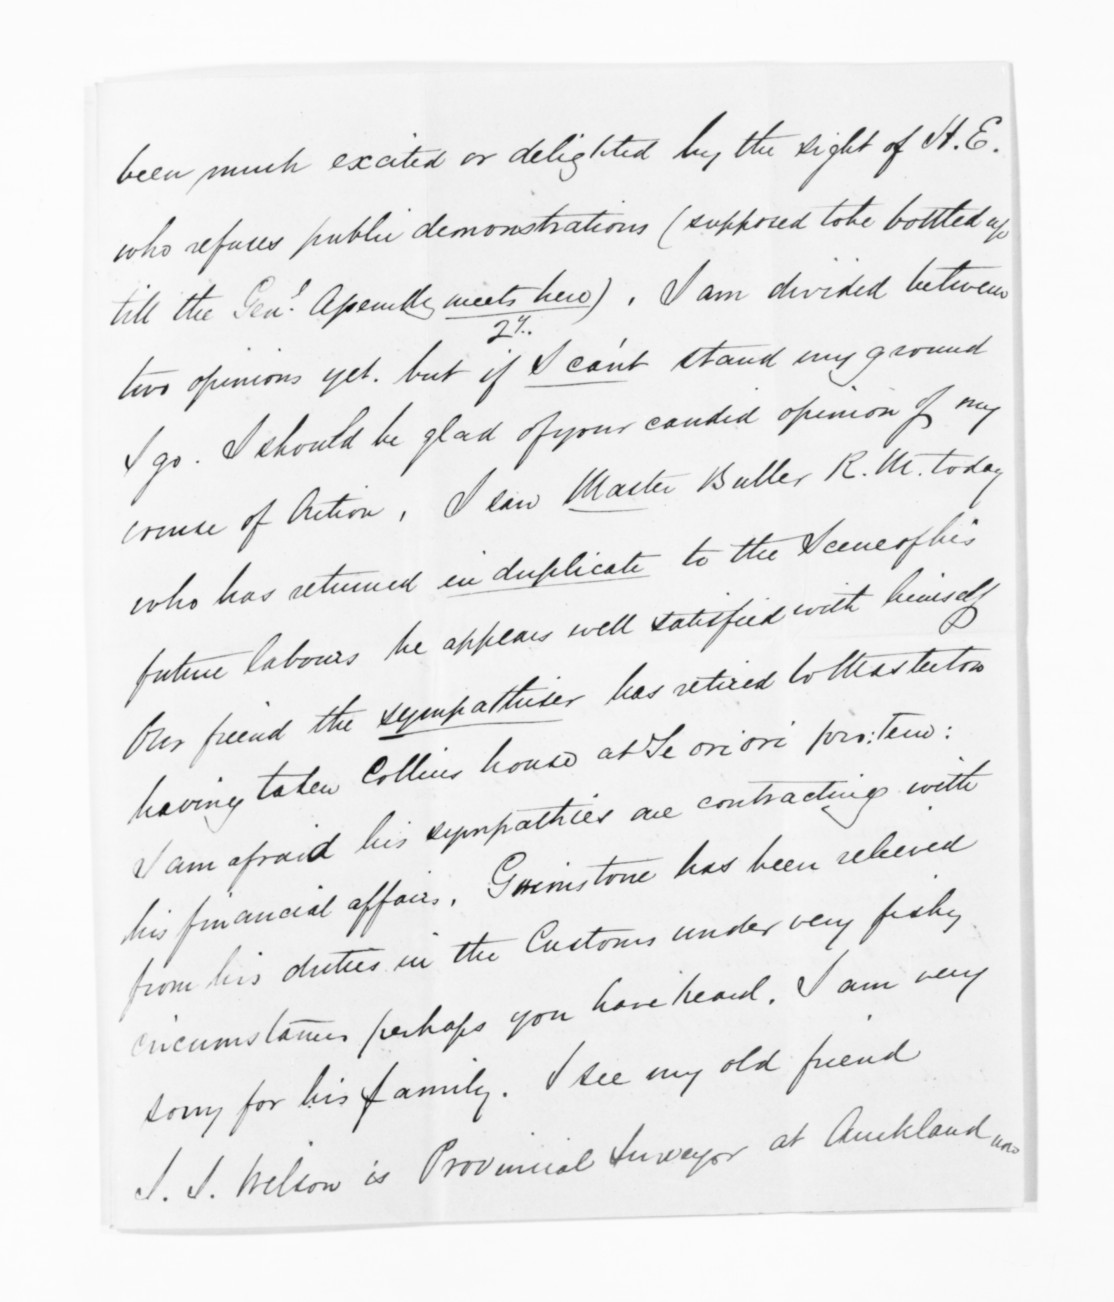 been much excited or delighted by the sight of H.E.
who refuses public demonstrations (supposed to be bottled up
till the Genl. Assembly meets here). I am divided between
two opinions yet. but if I can't stand my ground
I go. I should be glad of your candid opinion of my
course of Action, I saw Master Buller R.M. today
who has returned in duplicate to the Scene of his
future labours he appears well satisfied with himself
Our friend the sympathiser has retired to Masterton
having taken Collins house at Te ori ori pro: tem:
I am afraid his sympathies are contracting with
his financial affairs. Grimstone has been relieved
from his duties in the Customs under very fishy
circumstances perhaps you have heard. I am very
sorry for his family. I see my old friend
J. J. Wilson is Provincial Surveyor at Auckland now